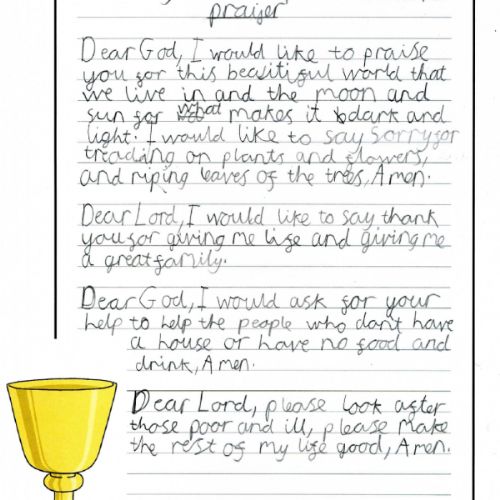 prayer
Dear God, I would like to praise
you for this beautitiful world that
we live in and the moon and
sun for what makes it dark and
light. I would like to say sorry for
treading on plants and flowers,
and riping leaves of the trees, Amen.
Dear Lord, I would like to say thank
you for giving me life and giving me
a great family.
Dear God, I would ask for your
help to help the people who dont have
a house or have no food and
drink, Amen.
Dear Lord, please look after
those poor and ill, please make
the rest of my life good, Amen.